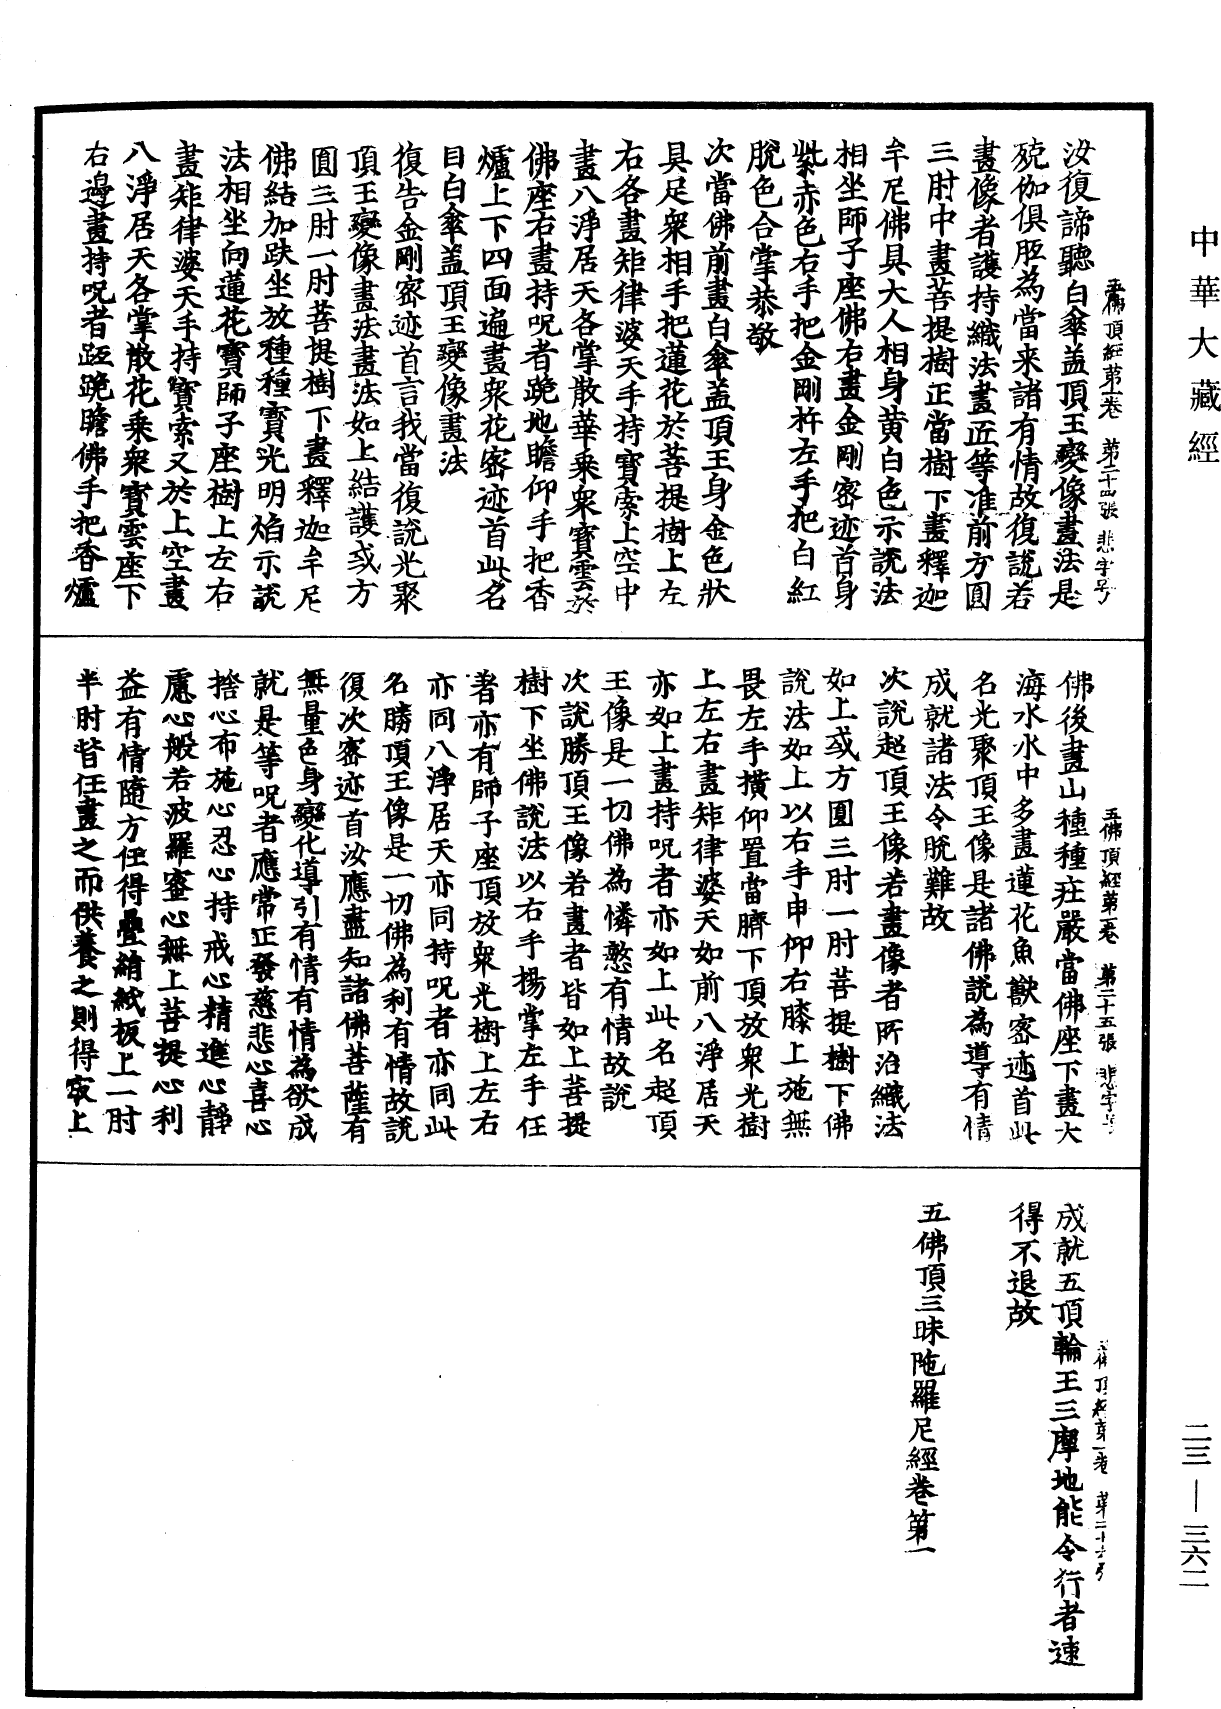 中華大藏經
五佛頂經第一卷 第二十四張 悲字号
汝復諦聽白傘盖頂王變像畫法是
殑伽俱胝為當来諸有情故復説若
畫像者護持織法畫匠等准前方圓
三肘中畫菩提樹正當樹下畫釋迦
牟尼佛具大人相身黄白色示説法
相坐師子座佛右畫金剛密迹首身
紫赤色右手把金剛杵左手把白紅
脫色合掌恭敬
次當佛前畫白傘盖頂王身金色狀
具足衆相手把蓮花於菩提樹上左
右各畫矩律婆天手持寳索上空中
畫八淨居天各掌散華乗衆寳雲於
佛座右畫持呪者跪地瞻仰手把香
爐上下四面遍畫衆花密迹首此名
目白傘盖頂王變像畫法
復告金剛密迹首言我當復説光聚
頂王變像畫法畫法如上結護或方
圓三肘一肘菩提樹下畫釋迦牟尼
佛結加趺坐放種種寳光明焰示説
法相坐向蓮花寳師子座樹上左右
畫矩律婆天手持寳索又於上空畫
八淨居天各掌散花乗衆寳雲座下
右邊畫持呪者跪瞻佛手把香爐
五佛頂經第一卷 第二十五張 悲字号
佛後畫山種種莊嚴當佛座下畫大
海水水中多畫蓮花魚獸密迹首此
名光聚頂王像是諸佛説為導有情
成就諸法令脫難故
次説超頂王像若畫像者所治織法
如上或方圓三肘一肘菩提樹下佛
説法如上以右手申仰右膝上施無
畏左手撗仰置當臍下頂放衆光樹
上左右畫矩律婆天如前八淨居天
亦如上畫持呪者亦如上此名超頂
王像是一切佛為憐愍有情故説
次説勝頂王像若畫者皆如上菩提
樹下坐佛説法以右手揚掌左手任
者亦有師子座頂放衆光樹上左右
亦同八淨居天亦同持呪者亦同此
名勝頂王像是一切佛為利有情故説
復次密迹首汝應盡知諸佛菩薩有
無量色身變化導引有情有情為欲成
就是等呪者應常正發慈悲心喜心
捨心布施心忍心持戒心精進心靜
慮心般若波羅蜜心無上菩提心利
益有情隨方任得疊綃紙板上一肘
半肘皆任畫之而供養之則得㝡上
五佛頂經第一卷 第二十六張
成就五頂輪王三摩地能令行者速
得不退故
五佛頂三昧陁羅尼經卷第一
二三—三六二